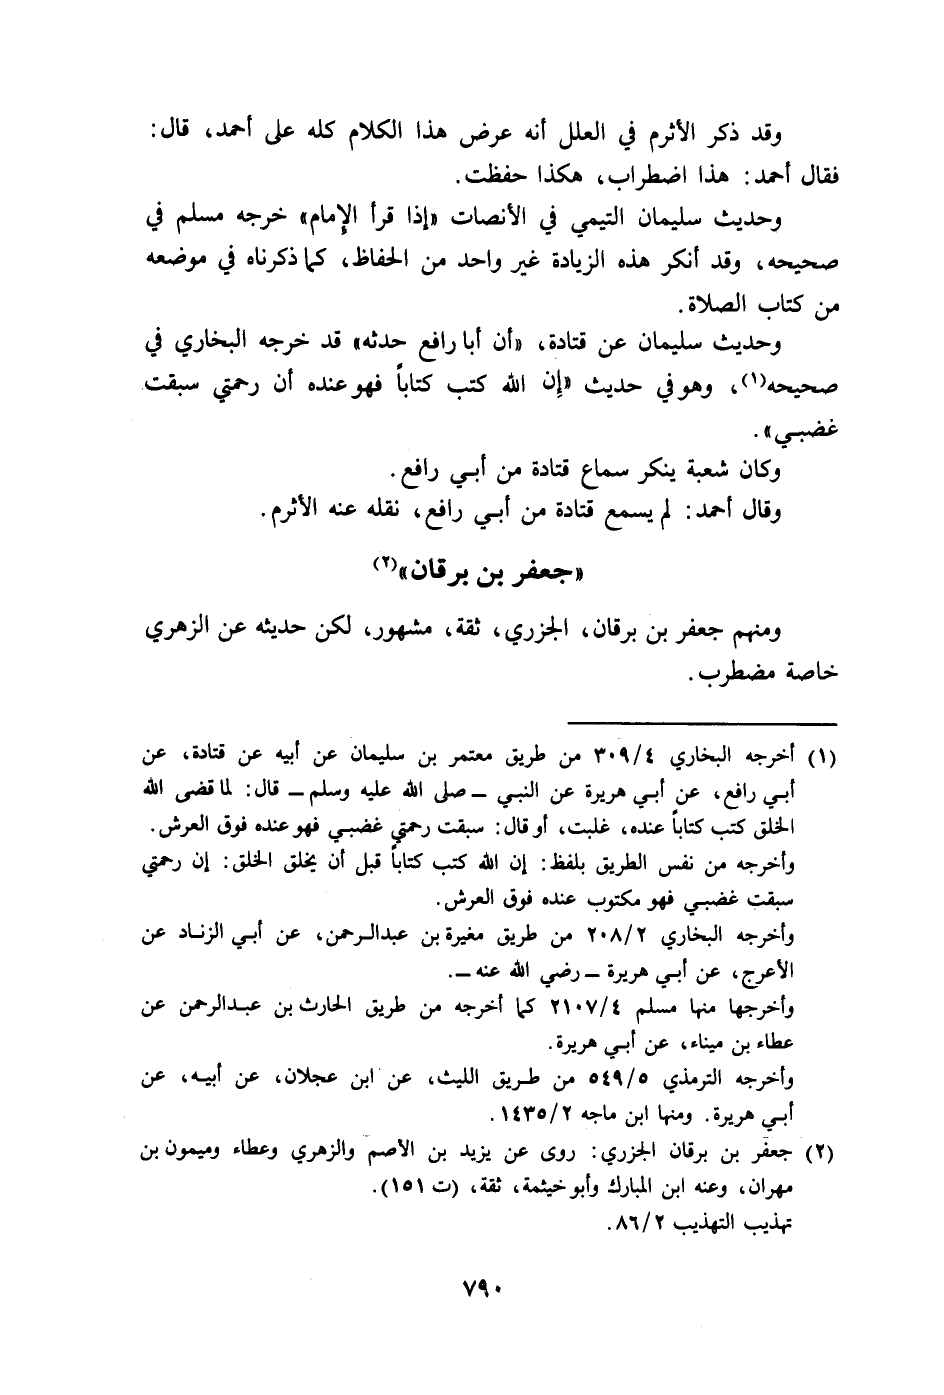 وقد ذكر الأثرم في العلل أنه عرض هذا الكلام كله على أحمد، قال:
فقال أحمد: هذا اضطراب، هكذا حفظت.
وحديث سليمان التيمي في الأنصات «إذا قرأ الإمام» خرجه مسلم في
صحيحه، وقد أنكر هذه الزيادة غير واحد من الحفاظ، كما ذكرناه في موضعه
من كتاب الصلاة.
وحديث سليمان عن قتادة، «أن أبا رافع حدثه» قد خرجه البخاري في
صحيحه(١)، وهو في حديث «إن الله كتب كتاباً فهو عنده أن رحمتي سبقت
غضبـي».
وكان شعبة ينكر سماع قتادة من أبـي رافع.
وقال أحمد: لم يسمع قتادة من أبـي رافع، نقله عنه الأثرم.
«جعفر بن برقان»(٢)
ومنهم جعفر بن برقان، الجزري، ثقة، مشهور، لكن حديثه عن الزهري
خاصة مضطرب.
(١) أخرجه البخاري ٣٠٩/٤ من طريق معتمر بن سليمان عن أبيه عن قتادة، عن
أبـي رافع، عن أبـي هريرة عن النبي ــ صلى الله عليه وسلم ــ قال: لما قضى الله
الخلق كتب كتاباً عنده، غلبت، أو قال: سبقت رحمتي غضبـي فهو عنده فوق العرش.
وأخرجه من نفس الطريق بلفظ: إن الله كتب كتاباً قبل أن يخلق الخلق: إن رحمتي
سبقت غضبـي فهو مكتوب عنده فوق العرش.
وأخرجه البخاري ٢٠٨/٢ من طريق مغيرة بن عبدالـرحمن، عن أبـي الزنـاد عن
الأعرج، عن أبـي هريرة ــ رضي الله عنه ــ.
وأخرجها منها مسلم ٢١٠٧/٤ كما أخرجه من طريق الحارث بن عبـدالرحمن عن
عطاء بن ميناء، عن أبـي هريرة.
وأخرجه الترمذي ٥٤٩/٥ من طـريق الليث، عن ابن عجلان، عن أبيـه، عن
أبـي هريرة. ومنها ابن ماجه ١٤٣٥/٢.
(٢) جعفر بن برقان الجزري: روى عن يزيد بن الأصم والزهري وعطاء وميمون بن
مهران، وعنه ابن المبارك وأبو خيثمة، ثقة، (ت ١٥١).
تهذيب التهذيب ٨٦/٢.
٧٩٠